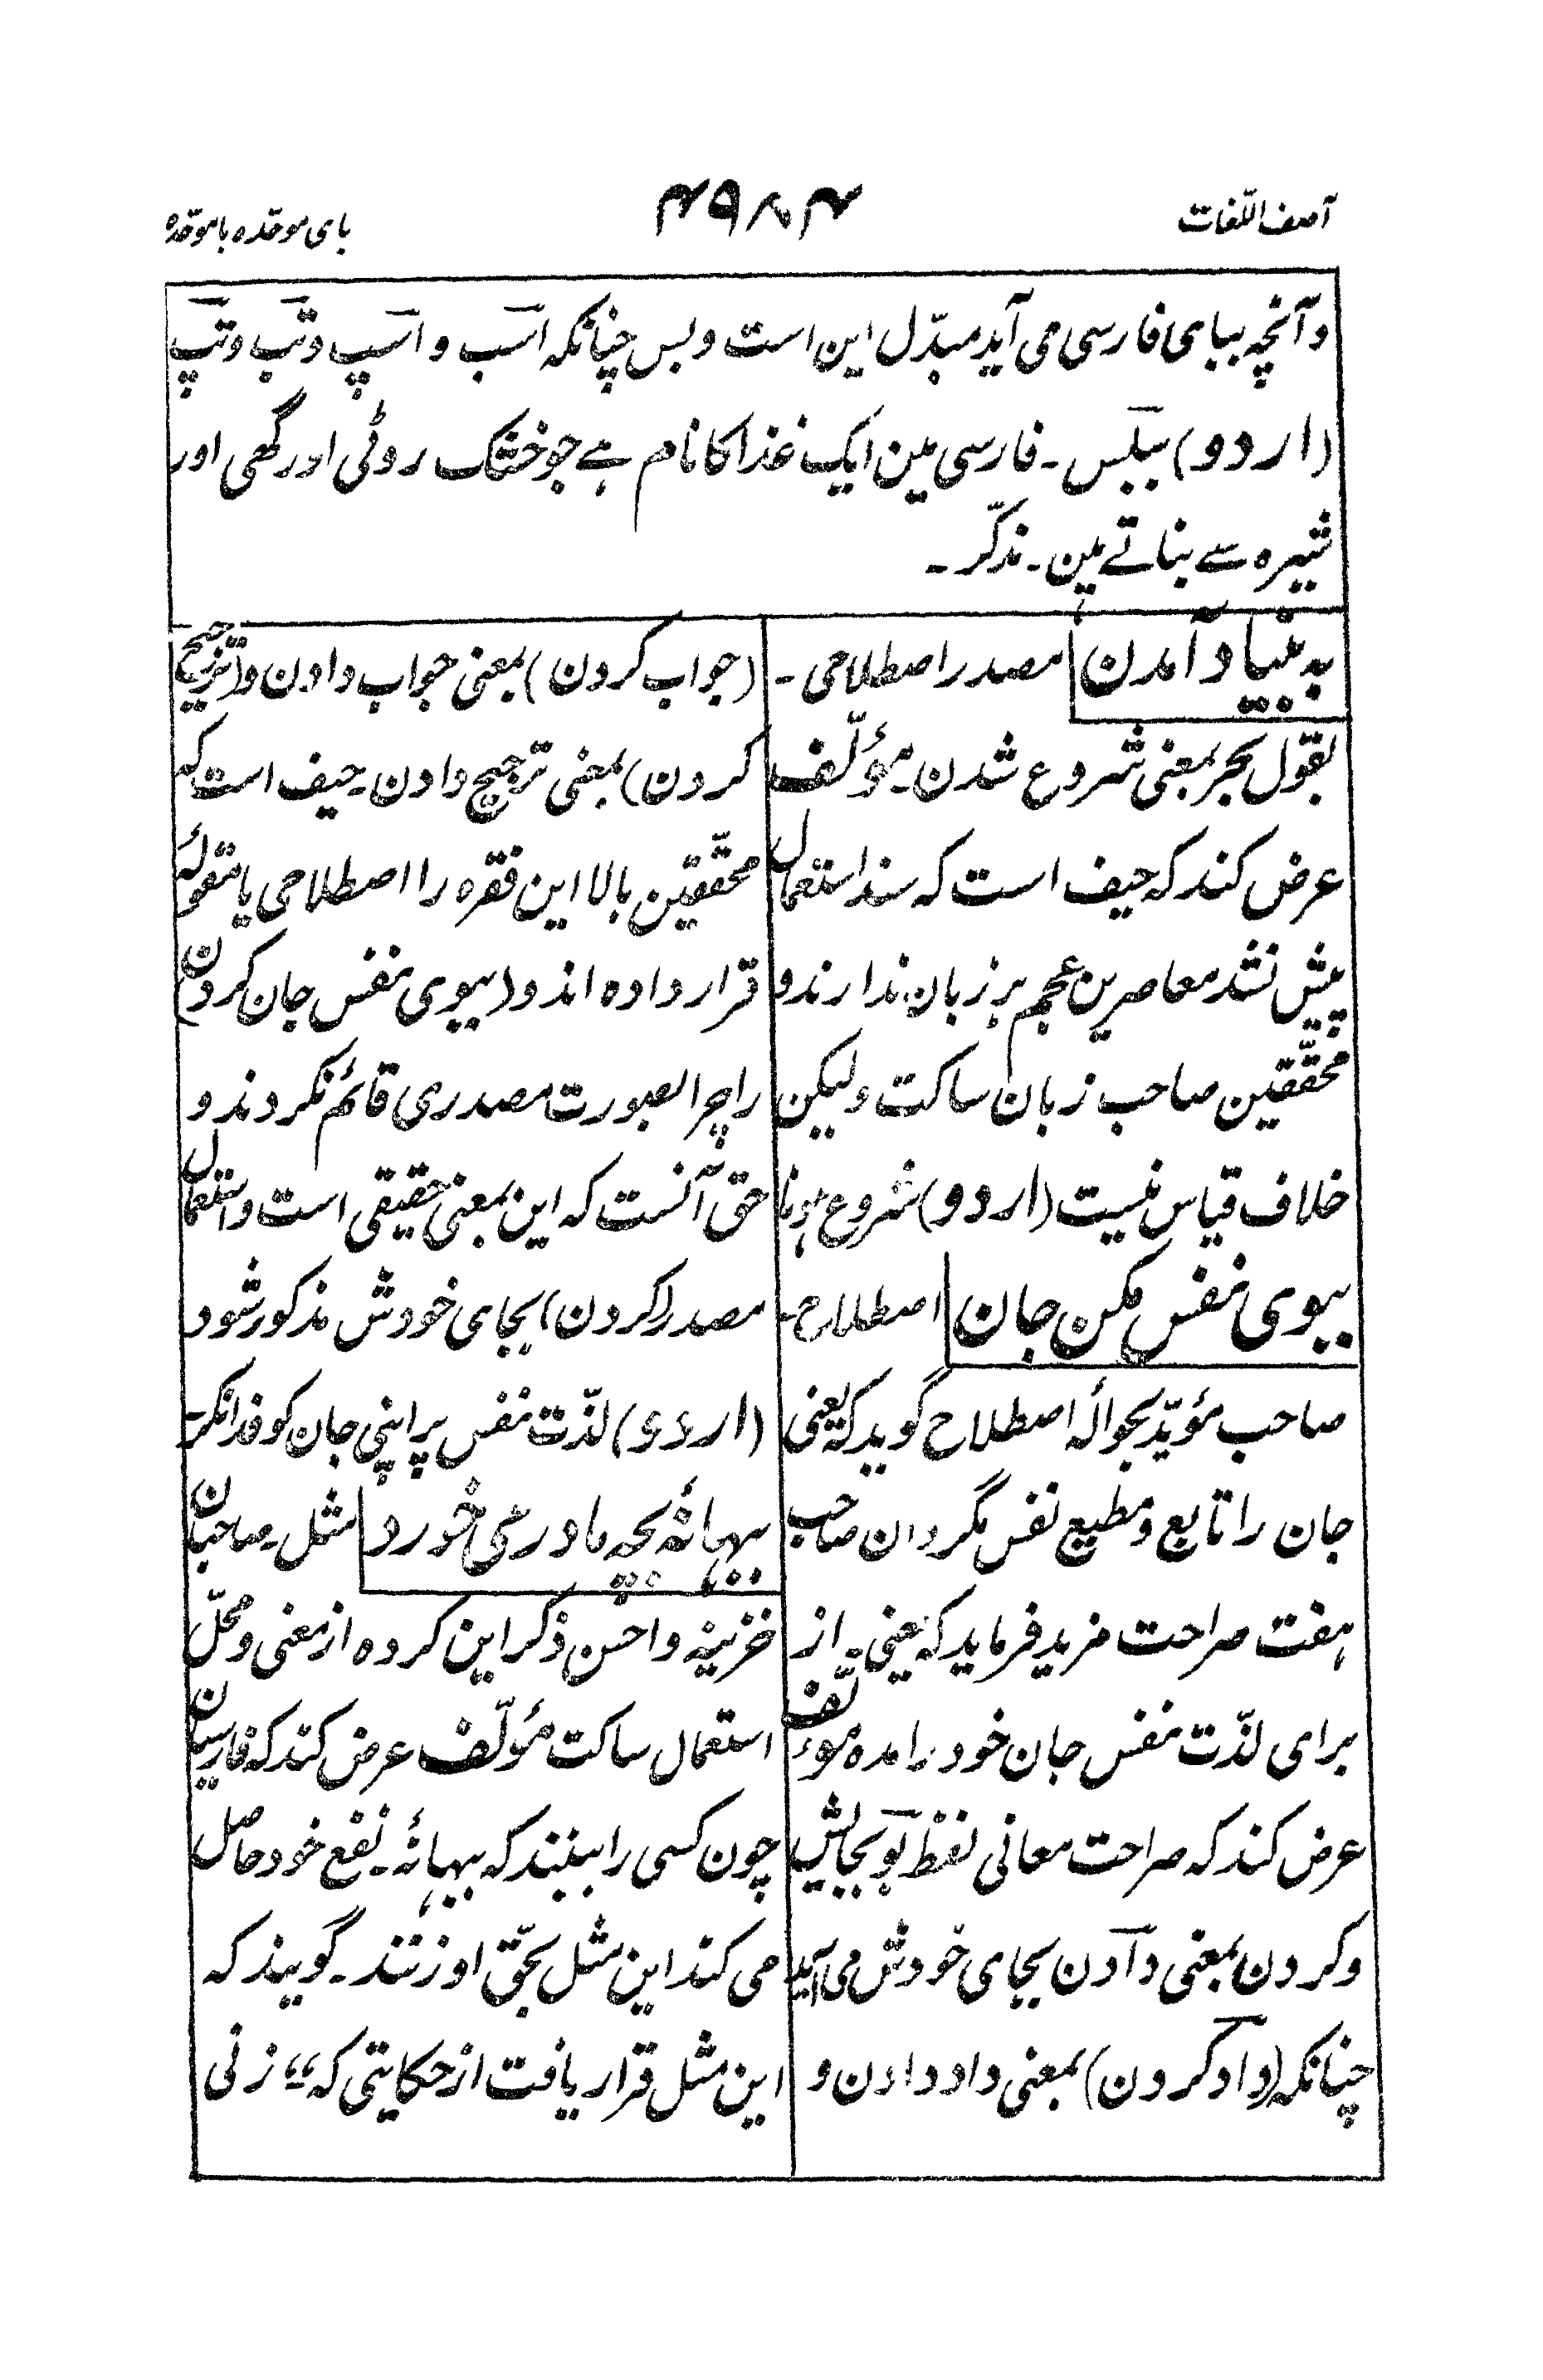 آصف اللّغات
۴۹۸۴
بای موحّده با موحّده
وآنچه ببای فارسی می آید مبدّل این است و بس چنانکه اسَب و اسَپ و تَب و تَپ
(اردو) ببکَس ۔ فارسی مین ایک غذا کا نام ہے جو خشک روٹی اور گھی اور
شیرہ سے بناتے ہین ۔ مذکّر ۔
به بنیاد آمدن مصدر اصطلاحی ۔
بقول بحر بمعنی شروع شدن ۔ مؤلّف
عرض کند که حیف است که سند استعمال
پیش نشد معاصرین عجم بر زبان ندارند و
محقّقین صاحب زبان ساکت ولیکن
خلاف قیاس نیست (اردو) شروع ہونا
ببوی نفس مکن جان اصطلاح ۔
صاحب مؤیّد بحوالهٔ اصطلاح گوید که یعنی
جان را تابع و مطیع نفس مگردان صاحب
هفت صراحت مزید فرماید که یعنی ۔ از
برای لذّت نفس جان خود را مده مؤلّف
عرض کند که صراحت معانی لفظ بَو بجایش
و کردن بمعنی دادن بجای خودش می آید
چنانکه (داد کردن) بمعنی داد دادن و
(جواب کردن) بمعنی جواب دادن و (ترجیح
کردن) بمعنی ترجیح دادن ۔ حیف است که
محقّقین بالا این فقره را اصطلاحی یا مقولهٔ
قرار داده اند و (ببوی نفس جان کردن)
را چرا بصورت مصدری قائم نکردند و
حق آنست که این بمعنی حقیقی است و استعمال
مصدر (کردن) بجای خودش مذکور شود
(اردو) لذّت نفس پر اپنی جان کو فدا نکر ۔
ببهانهٔ بچه مادر می خورد مثل ۔ صاحبان
خزینه و احسن ذکر این کرده از معنی و محلّ
استعمال ساکت مؤلّف عرض کند که فارسیان
چون کسی را ببینند که ببهانهٔ ۔ نفع خود حاصل
می کند این مثل بحقّ او زنند ۔ گویند که
این مثل قرار یافت از حکایتی که ،، زنی